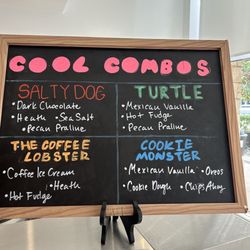 COOL COMBOS
SALTY DOG
• Dark Chocolate
• Heath • Sea Salt
• Pecan Praline
TURTLE
• Mexican Vanilla
• Hot Fudge
• Pecan Praline
THE COFFEE
LOBSTER
• Coffee Ice Cream
• Heath
• Hot Fudge
COOKIE
MONSTER
• Mexican Vanilla • Oreos
• Cookie Dough • Chips Ahoy